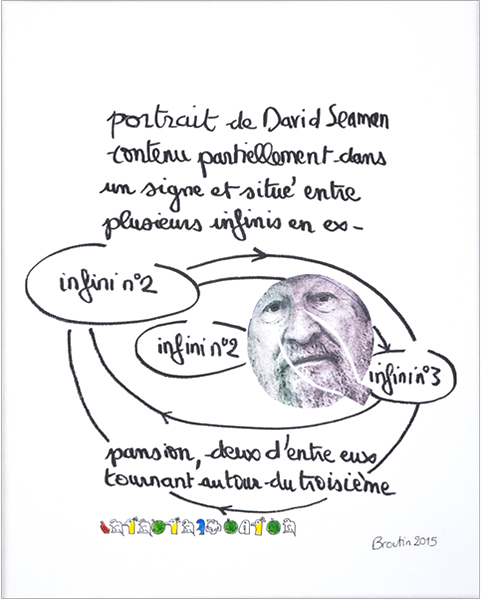 portrait de David Seaman
contenu partiellement dans
un signe et situé entre
plusieurs infinis en ex-
infini n°2
infini n°2
infini n°3
pansion, deux d'entre eux
tournant autour du troisième
Broutin 2015